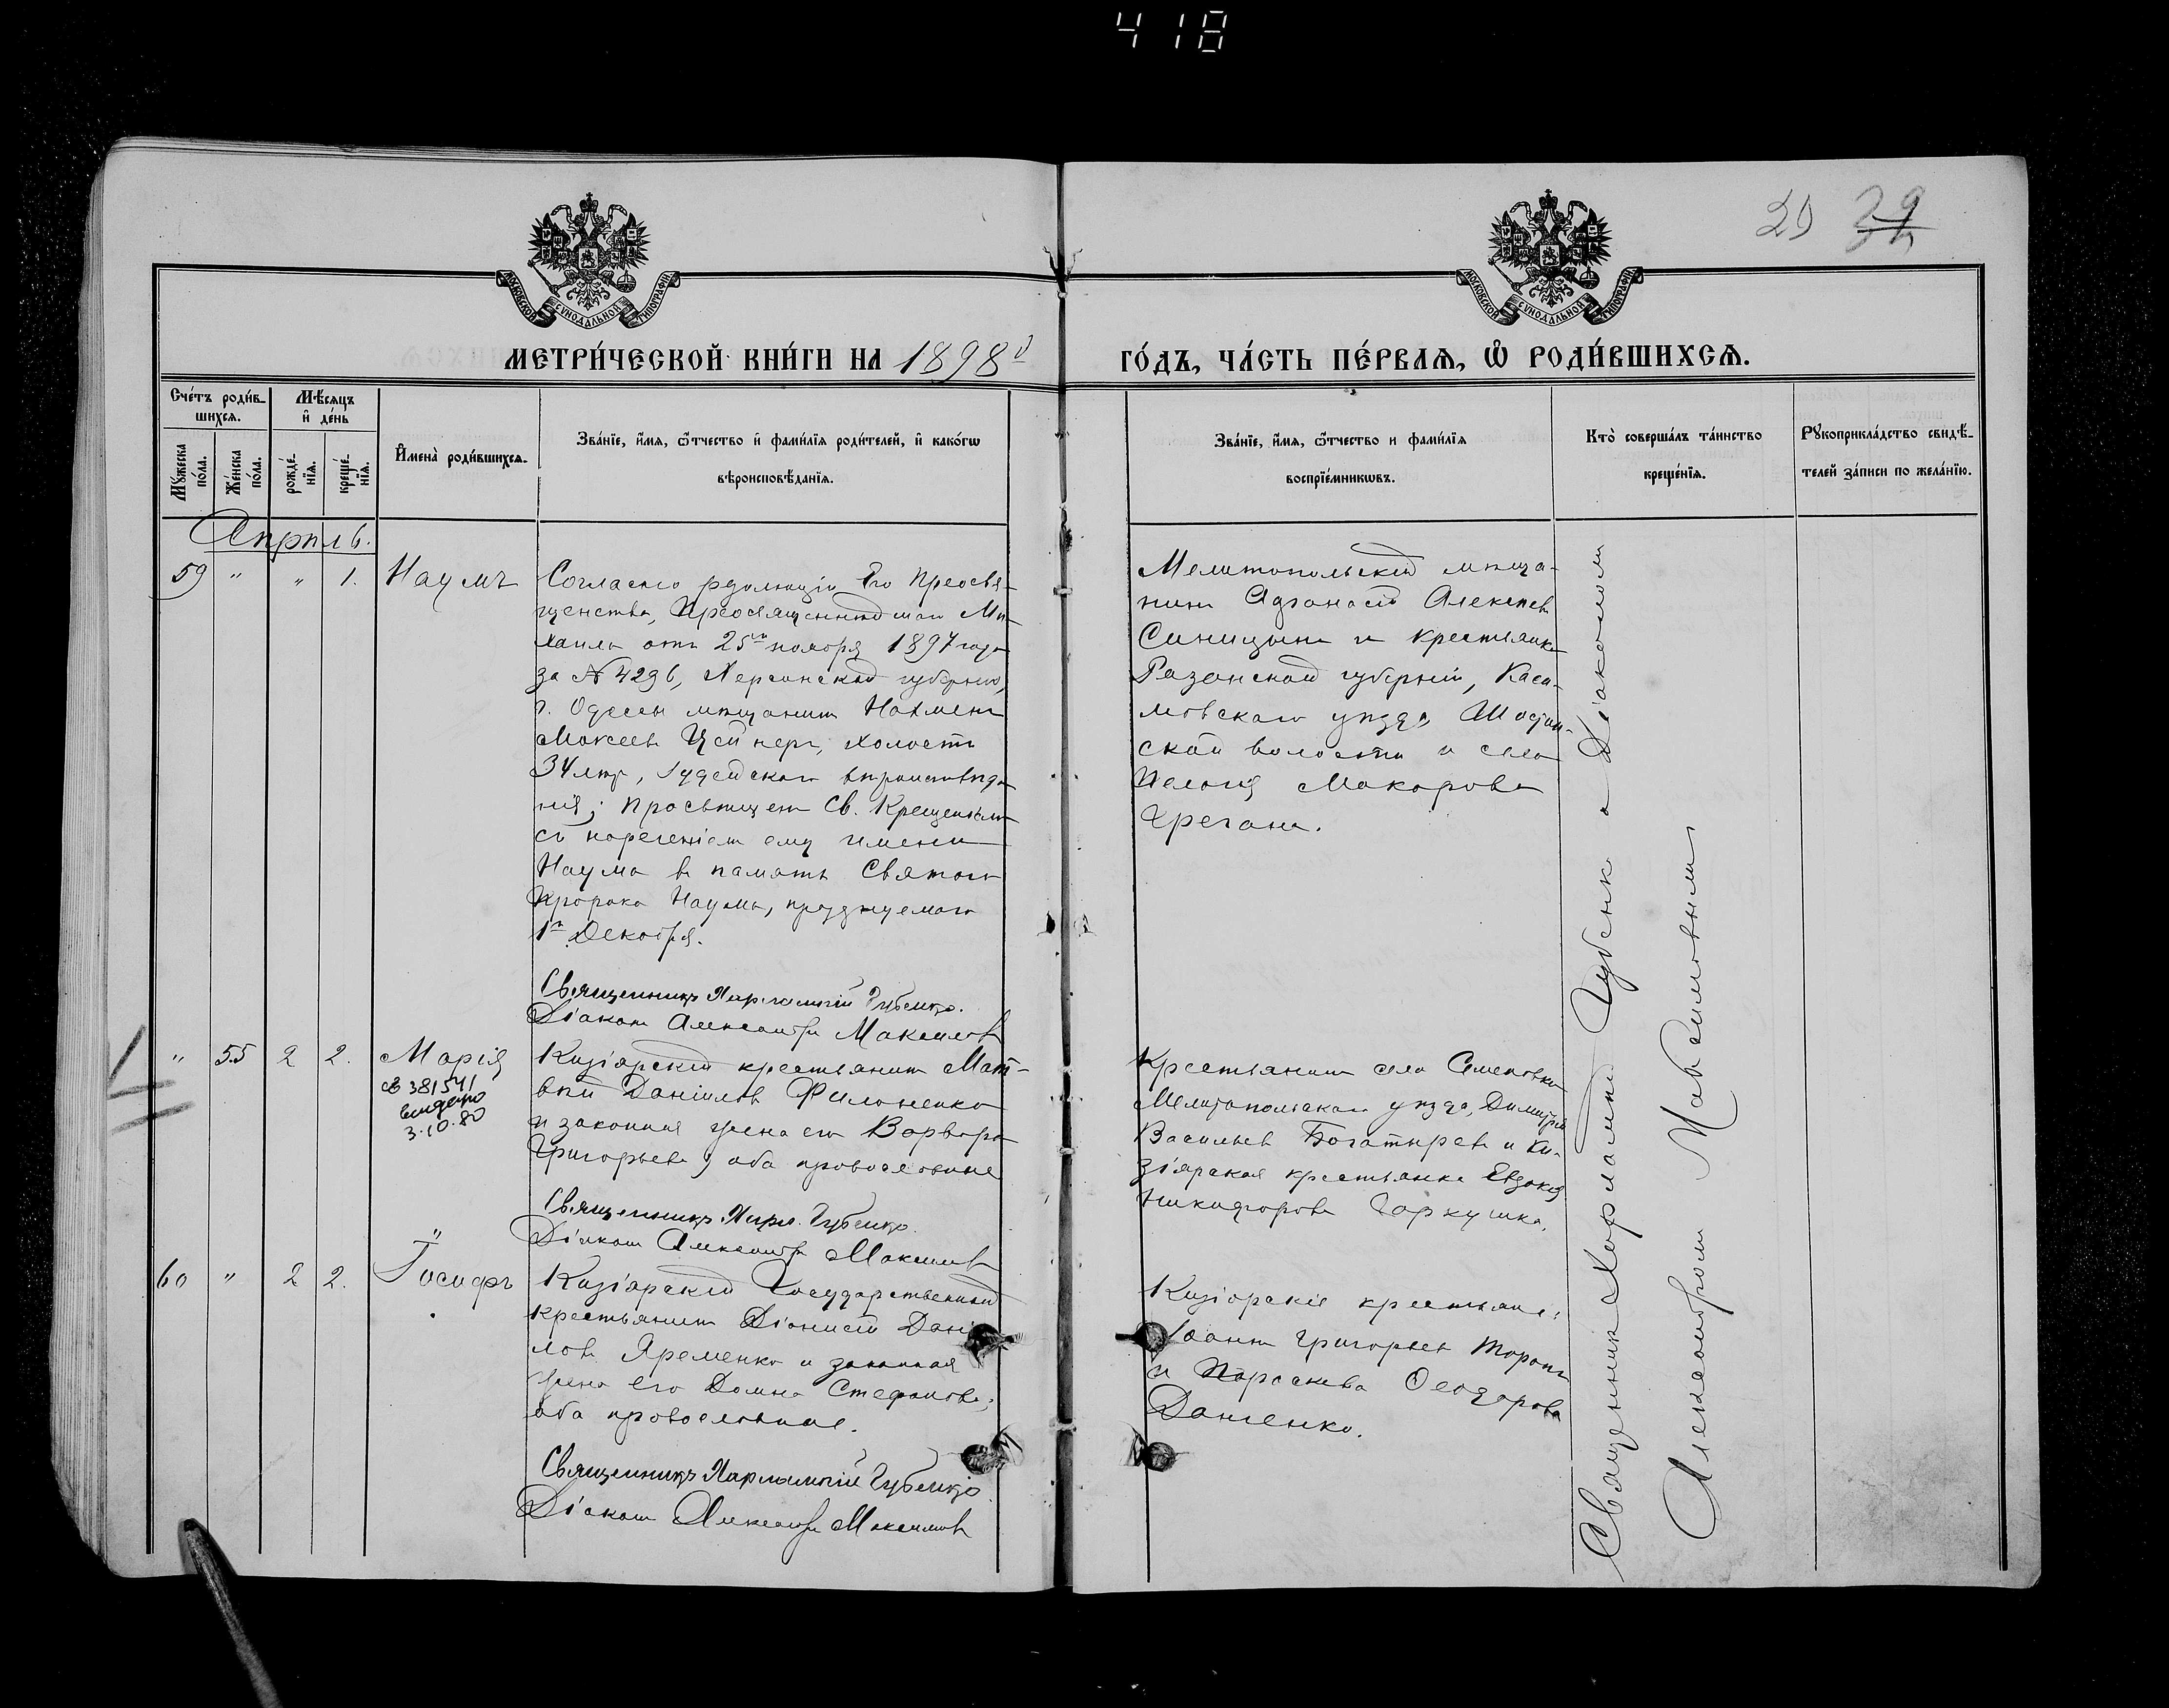 418
29 32
МОСКОВСКОЙ СУНОДАЛЬНОЙ ТИПОГРАФІИ
МОСКОВСКОЙ СУНОДАЛЬНОЙ ТИПОГРАФІИ
МЕТРИ́ЧЕСКОЙ КНИ́ГИ НА 1898й
ГО́ДЪ, ЧА́СТЬ ПЕ́РВАѦ, Ѡ҆ РОДИ́ВШИХСѦ.
Сче́тъ роди́в-
шихсѧ.
Мꙋ́жеска по́ла.
Же́нска по́ла.
Мѣ́сѧцъ
и҆ де́нь
рожде́-нїѧ.
креще́-нїѧ.
И҆мена̀ роди́вшихсѧ.
Зва́нїе, и҆́мѧ, ѻ҆́тчество и҆ фами́лїѧ роди́телей, и҆ како́гѡ
вѣроисповѣ́данїѧ.
Зва́нїе, и҆́мѧ, ѻ҆́тчество и фами́лїѧ
воспрїе́мникѡвъ.
Кто̀ соверша́лъ та́инство
креще́нїѧ.
Рꙋкоприкла́дство свидѣ́-
телей за́писи по жела́нїю.
Апрѣль.
59 " " 1. Наумъ
Согласно резолюціи Его Преосвя-
щенства, Преосвященнѣйшаго Ми-
хаила отъ 25го ноября 1897 года
за № 4296, Херсонской губерніи,
г. Одессы мѣщанинъ Нахменъ
Моисеевъ Цейнеръ, холостъ
34 лѣтъ, Іудейскаго вѣроисповѣда
нія; просвѣщенъ Св. Крещеніемъ
съ нареченіемъ ему имени
Наума въ память Святого
Пророка Наума, празднуемаго
1го Декабря.
Священникъ Харлампій Губенко.
Діаконъ Александръ Максимовъ
Мелитопольскій мѣща-
нинъ Афанасій Алексѣевъ
Синицынъ и крестьянка
Рязанской губерніи, Каси-
мовскаго уѣзда,
ской волости и села
Пелагія Макарова
" 55 2 2. Марія
св 381541
выдано
3.10.80
Кизіярскій крестьянинъ Мат-
вѣй Даніиловъ Филоненко
и законная жена его Варвара
Григорьева, оба православные
Священникъ Харл. Губенко.
Діаконъ Александръ Максимовъ
Крестьянинъ села Семеновки
Мелитопольскаго уѣзда, Димитрій
Васильевъ Богатыревъ и Ки-
зіярская крестьянка Евдокія
Никифорова Гаркушка.
60 " 2 2. Іосифъ
Кизіярскій Государственный
крестьянинъ Діонисій Дані
ловъ Яременко и законная
жена его Домна Стефанова,
оба православные.
Священникъ Харлампій Губенко
Діаконъ Александръ Максимовъ
Кизіярскіе крестьяне:
Іоаннъ Григорьевъ
и Параскева Ѳеодорова
Данченко.
Священникъ Харлампій Губенко и Діакономъ
Александромъ Максимовымъ